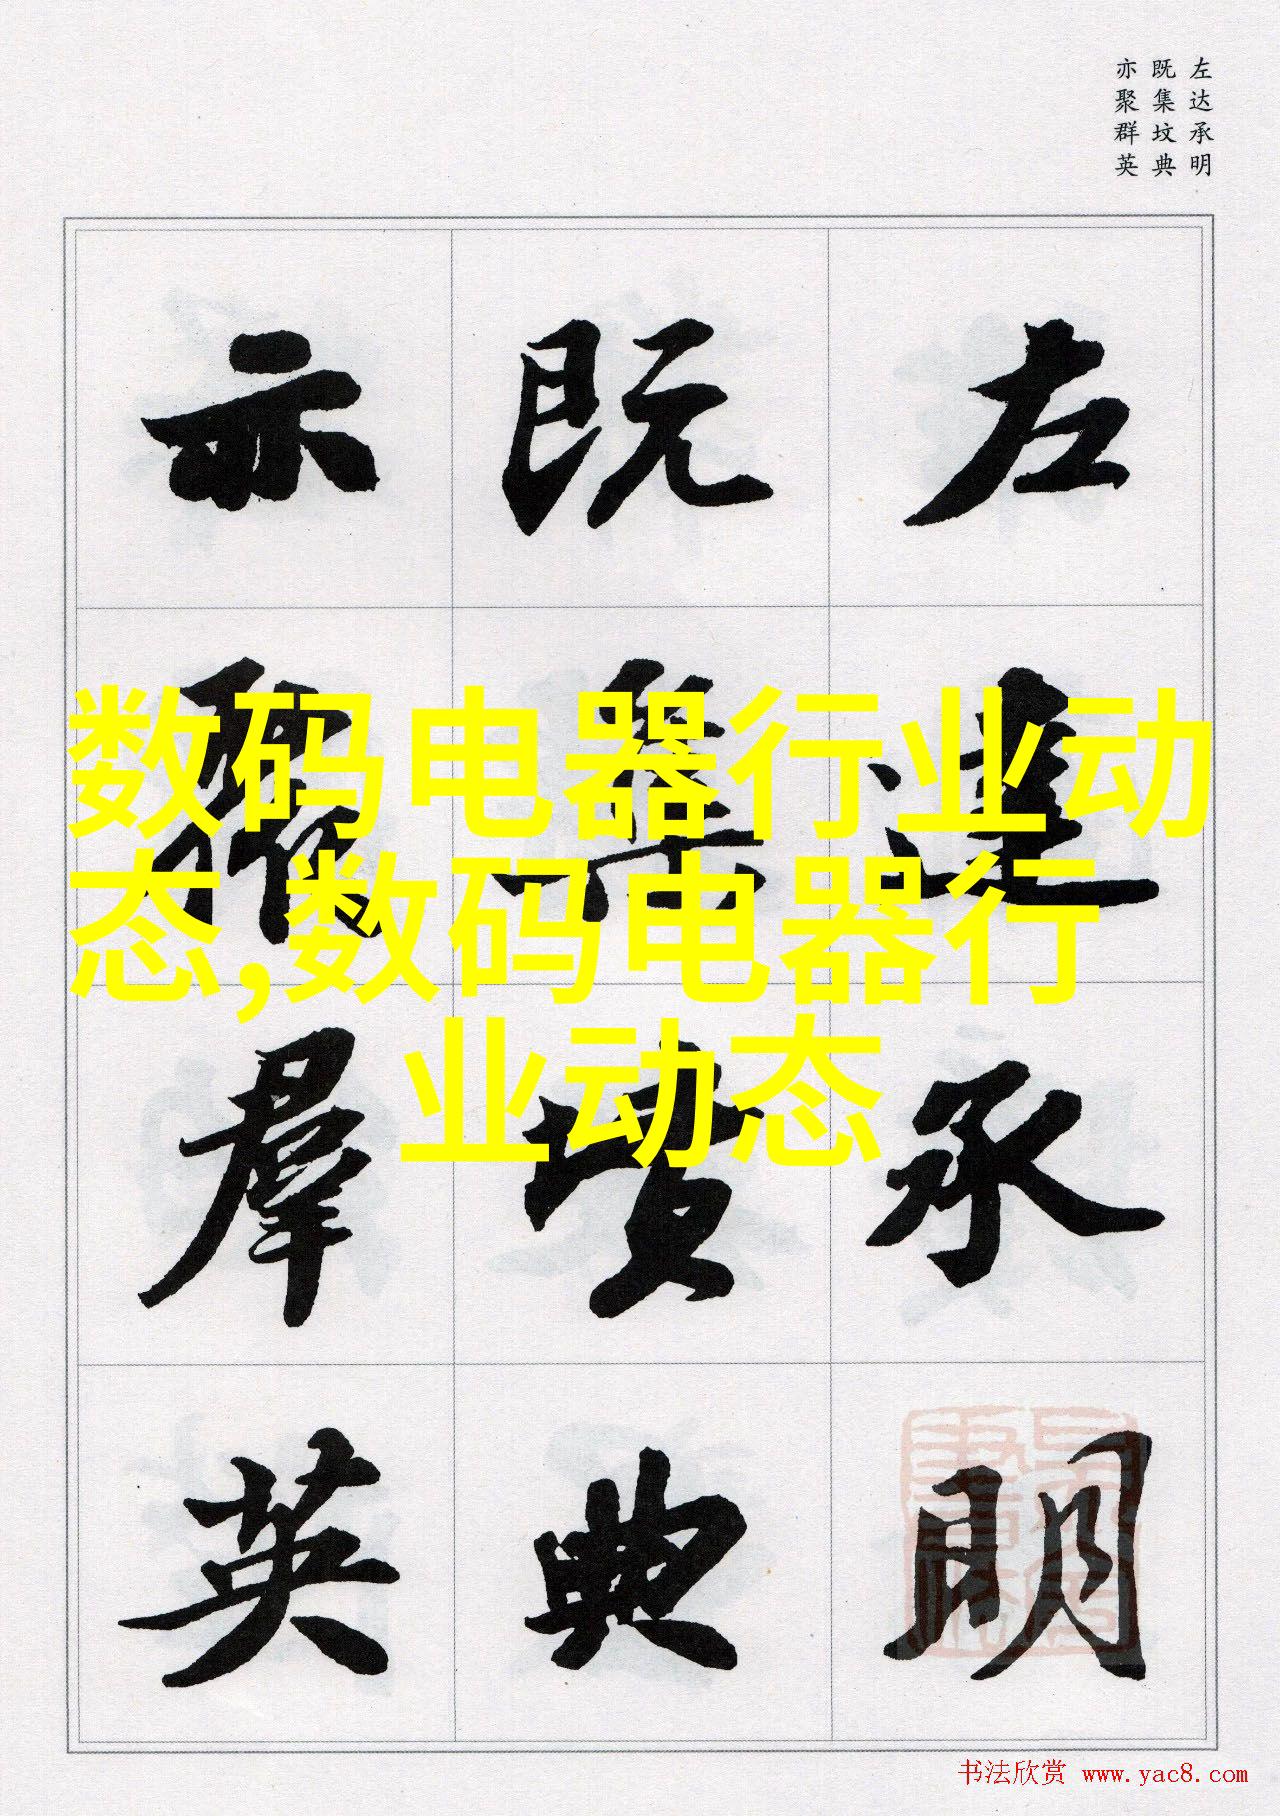 左达承明
既集坟典
亦聚群英
左達承明
既集墳典
亦聚羣英
数码电器行业动
态,数码电器行
业动态
书法欣赏 www.yac8.com